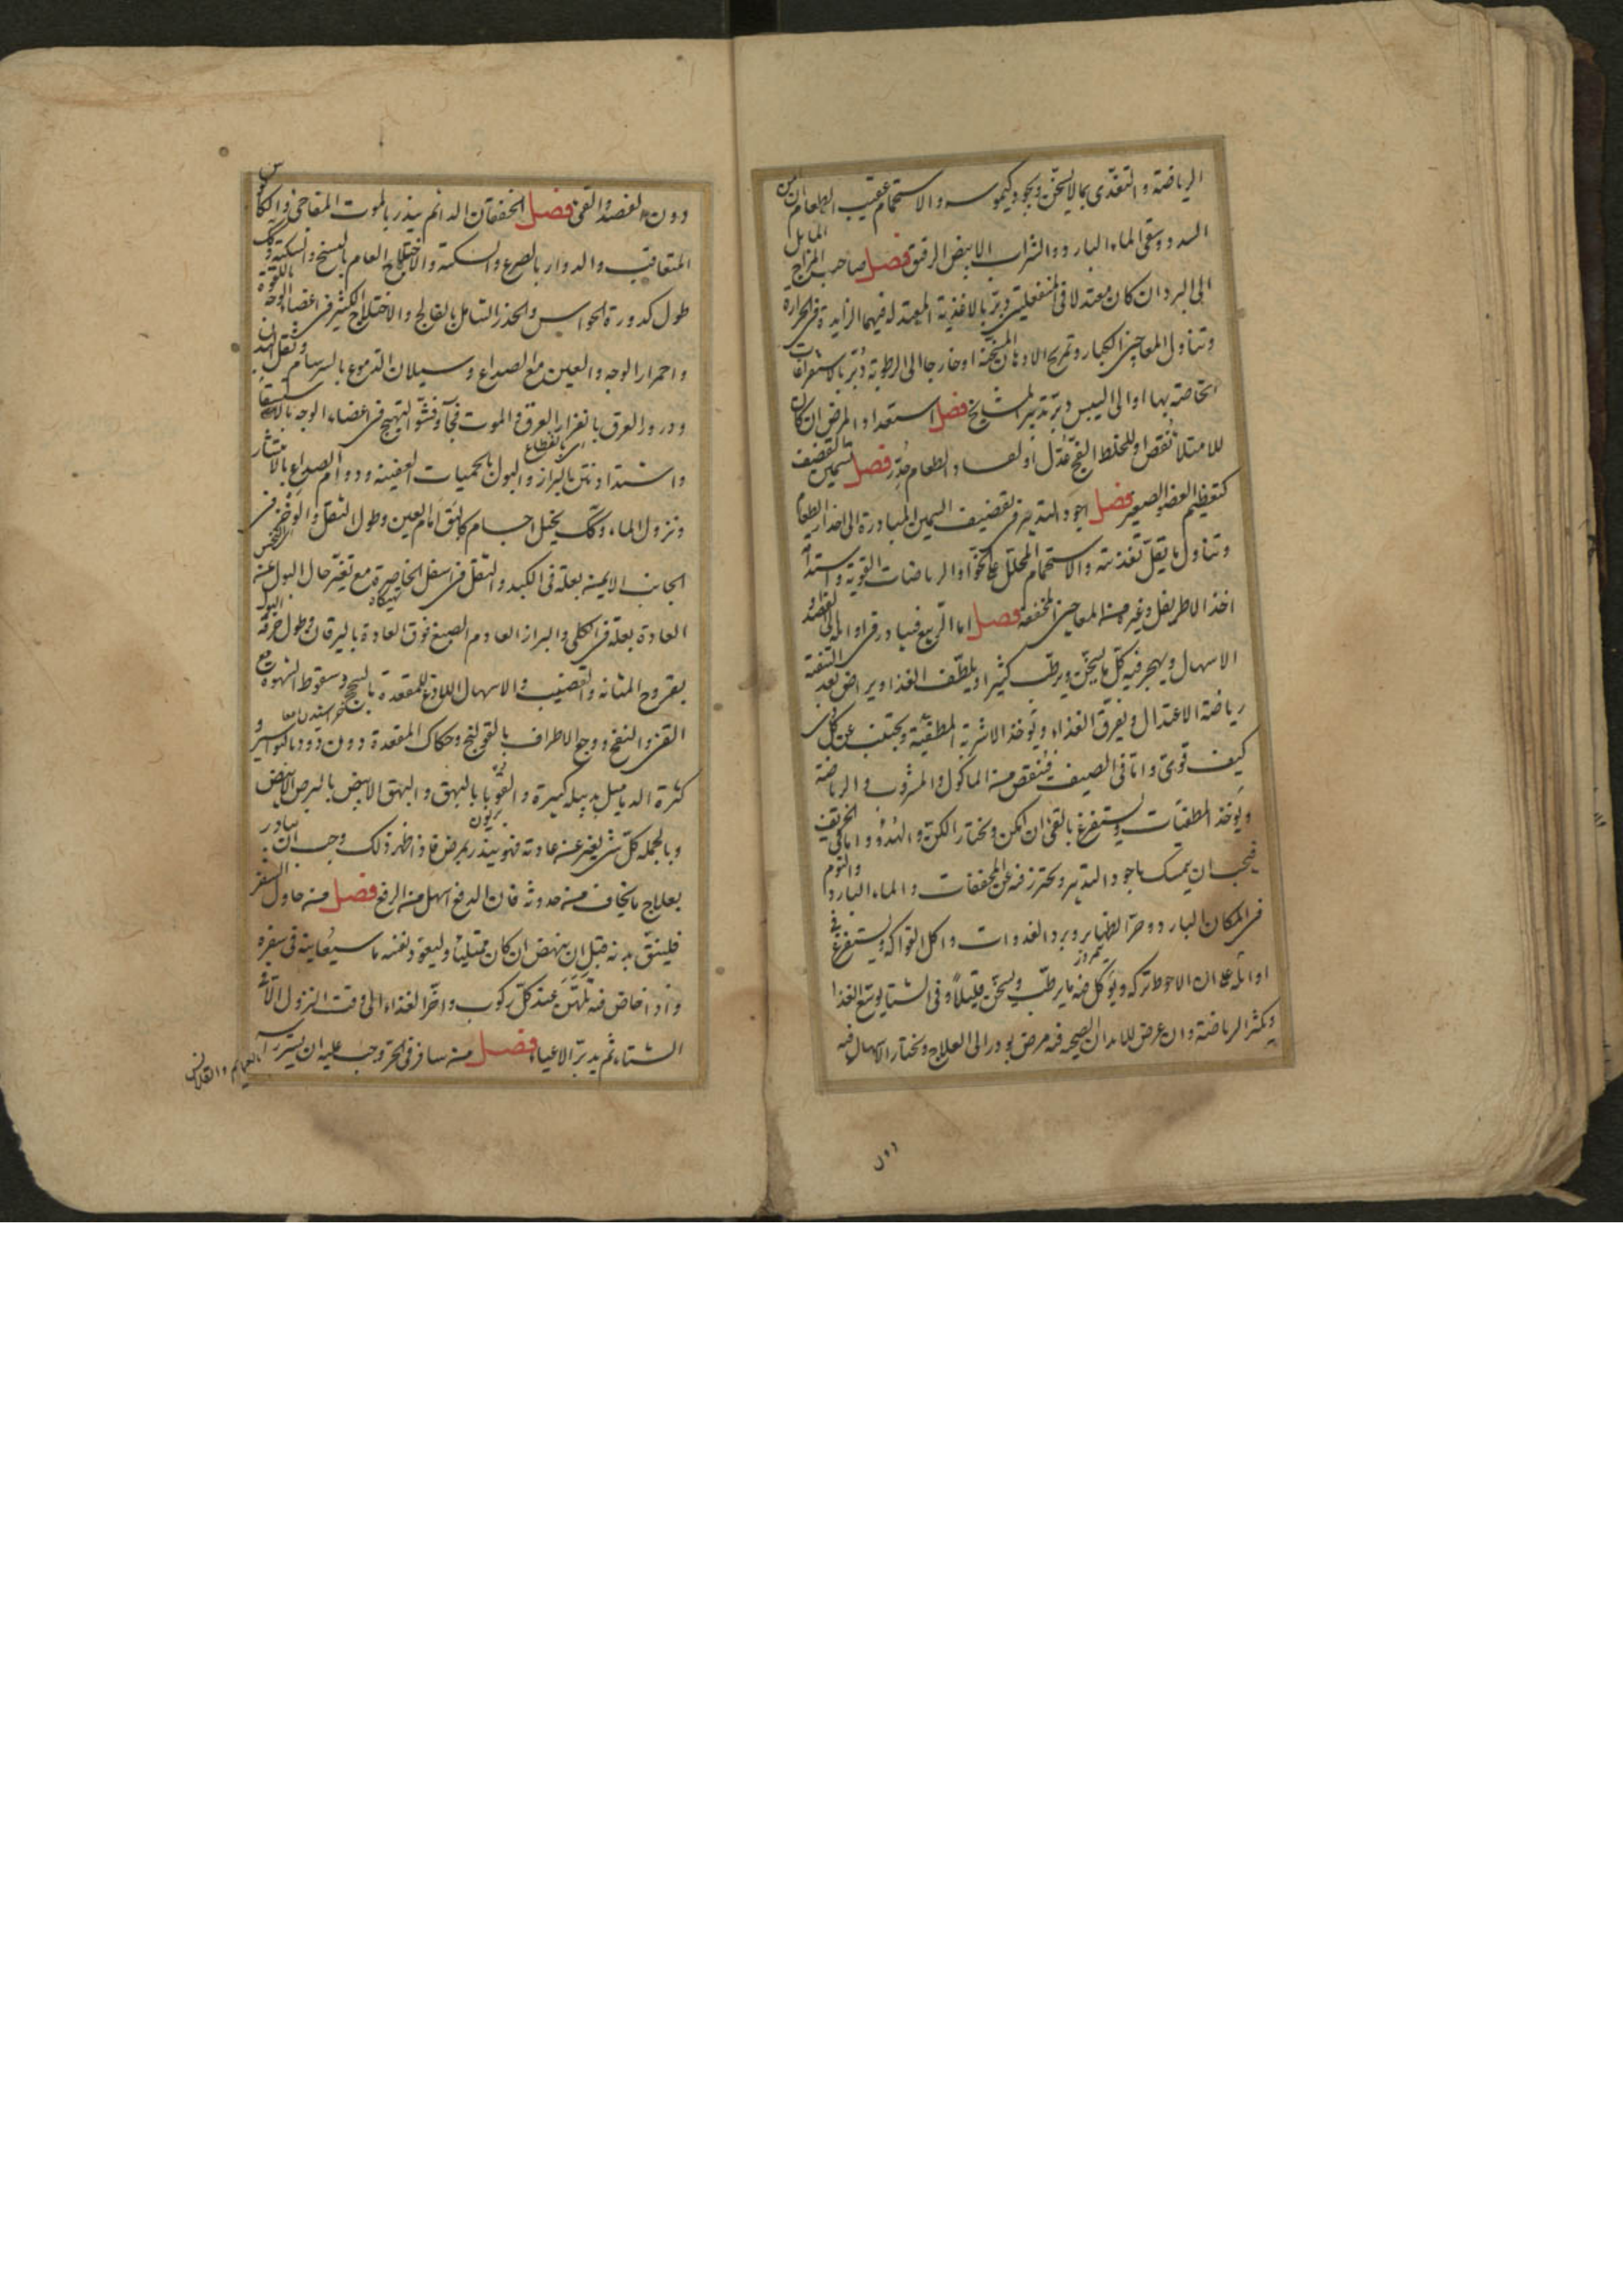 الرياضة والتغذى بما لا يسخن ويجود كيموسه والاستحمام عقيب الطعام ان امن
السدد وسقى الماء البارد والشراب الابيض الرقيق فصل صاحب المزاج المايل
الى البرد ان كان معتدلا فى المنفعلين دبر بالاغذية المعتدلة فيهما الزايدة فى الحرارة
وتناول المعاجين الكبار وتمريخ الادهان المسخنة او خارجا الى الرطوبة دبر بالاستفراغات
الخاصة بها او الى اليبس دبر تدبير المشايخ فصل استعداد المرض ان كان
للامتلا نقص او للخلط الفج عدل او لفساد الطعام دبر فصل تسمين القضيف
كتعظيم العضو الصغير فصل اجود التدبير فى تقضيف السمين المبادرة الى احدار الطعام
وتناول ما يقل تغذيته والاستحمام المحلل على الخوا والرياضات القوية واستدامة
اخذ الاطريفل وغيره من المعاجين المجففه فصل اما الربيع فيبادر فى اوائله الى الفصد و
الاسهال ويهجر فيه كل ما يسخن ويرطب كثيرا ويلطف الغذا ويراض بعد التنقية
رياضة الاعتدال ويفرق الغذاء ويؤخذ الاشربة المطفية ويجتنب عن كل
كيف قوى واما فى الصيف فينقص من الماكول والمشروب والرياضة
ويؤخذ المطفيات ويستفرغ بالقى ان امكن ويختار الكن والهدؤ واما فى الخريف
فيجب ان يمسك باجود التدبير ويحترز فيه عن المجففات والماء البارد والنوم
فى المكان البارد وحر الظهاير وبرد الغدوات واكل الفواكه ويستفرغ فى
نيمروز
اوائله على ان الاحوط تركه ويؤكل فيه ما يرطب ويسخن قليلا وفى الشتا يوسع الغذا
ويكثر الرياضة وان عرض للابدان الصحيحه فيه مرض بودر الى العلاج ويختار الاسهال فيه
دون
دون الفصد والقى فصل الخفقان الدائم ينذر بالموت المفاجى والكابوس
المتعاقب والدوار بالصرع والسكتة والاختلاج العام بالتشنج والسكتة وكك
طول كدورة الحواس والخدر الشامل بالفالج والاختلاج الكثير فى اعضاء الوجه باللقوة
واحمرار الوجه والعين مع الصداع وسيلان الدموع بالسرسام وثقل البدن
ودرور العرق بانفزار العرق والموت فجأة وفشو التهيج فى اعضاء الوجه بالاستسقا
اى بانقطاع
واشتداد نتن البراز والبول بالحميات العفينه ودوام الصداع بالانتشار
ونزول الماء وكك تخيل اجسام كالبق امام العين وطول الثقل والوخز فى
الجانب الايمن بعلة فى الكبد والثقل فى اسفل الخاصرة مع تغير حال البول عن
تهيكاه
العادة بعلة فى الكلى والبراز العادم الصبغ فوق العادة باليرقان وطول حرقة البول
بقروح المثانة والقضيب والاسهال اللادغ للمقعدة بالسحج وسقوط الشهوة مع
القى والنفخ ووجع الاطراف بالقولنج وحكاك المقعدة دون دود بالبواسير و
كثرة الدماميل بدبيلة كبيرة والقوبا بالبهق والبهق الابيض بالبرص الابيض
بريون
وبالجملة كل شى يغير عن عادته فهو ينذر بمرض فاذا ظهر ذلك وجب ان يبادر
بعلاج ما يخاف من حدوثه فان الدفع اسهل من الرفع فصل من حاول السفر
فلينق بدنه قبل ان ينهض ان كان ممتليا وليعود نفسه ما سيعاينه فى سفره
واذا خاض فيه تمرن عند كل ركوب واخر الغذاء الى وقت النزول الا فى
الشتاء ثم يدبر الاعياء فصل من سافر فى الحر وجب عليه ان يستر راسه
بالعمايم والقلانس